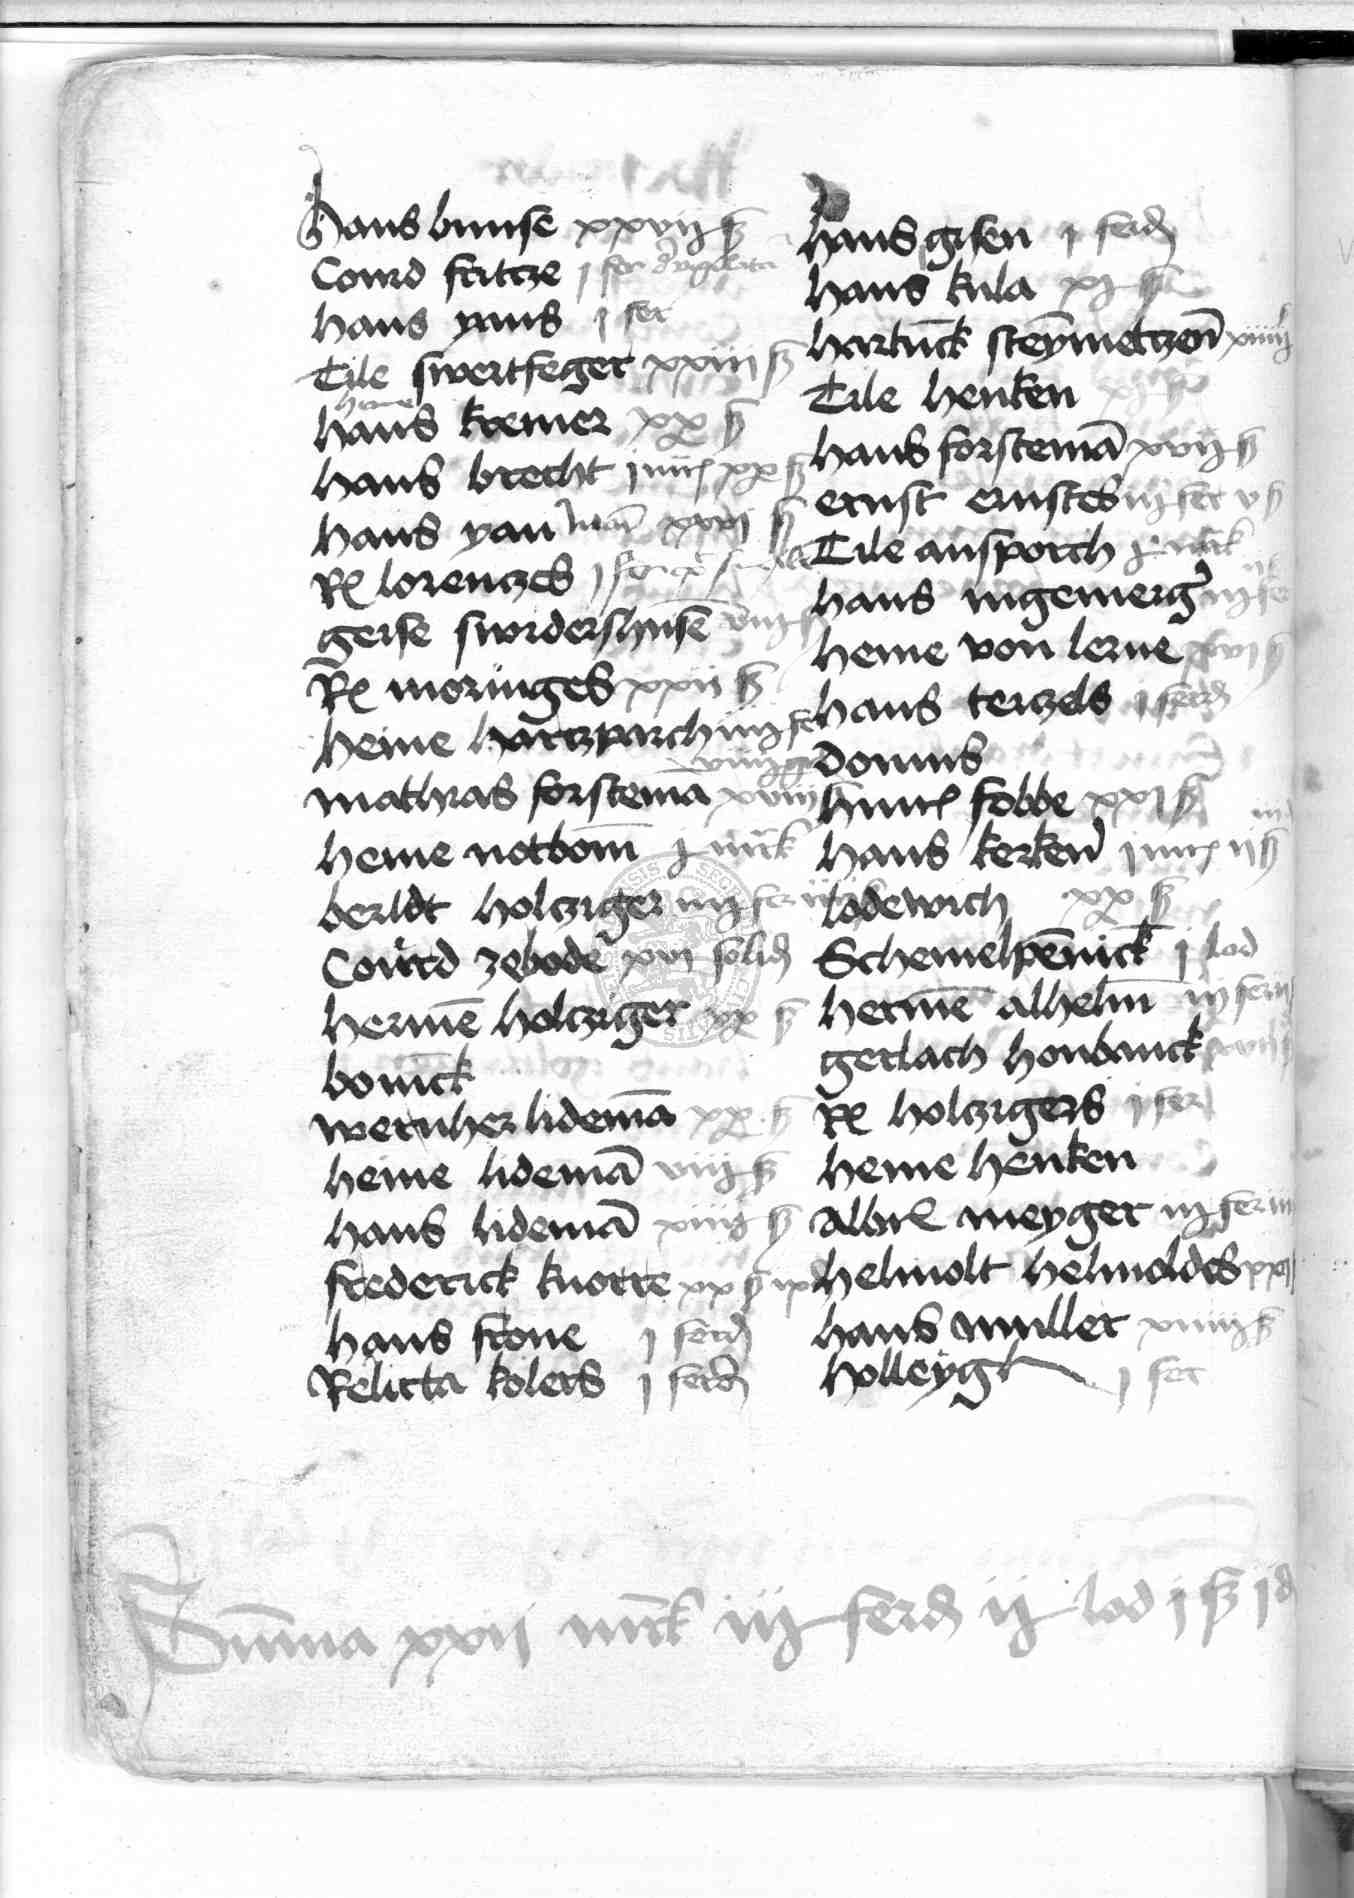 Hans bunse xxvij ß
Courd fritcze j fer
hans yans j fer
Tile swertfeger xxiiii ß
heine
hans kremer xx ß
hans brecht j mrc xx ß
hans yan xxvi ß
Rel lorenczes j fer
gerse swordershusē viij ß
Rel moringes xxii ß
heine hartzparch iiij fer
mathias forstemā xviij ß
heine notbom̄ j mrck
berldt holcziger iij fer
Courd zebode xvi solid
hermē holcziger xx ß
bonick
wernher lidemā xx ß
heine lidemā viij ß
hans lidemā xiiij ß
frederick knorre xx ß ix
hans frone j ferd
Relicta kolers j ferd
hans gisen j ferd
hans kula xj ß
hartūck steȳmetzen̄ xiiij
Tile henken
hans forstemā xvij ß
ernst ernstes iij fer v ß
Tile ansporch j mrck
hans
heine von lerne xvi ß
hans terczels j ferd
domus
hinr fobbe xxi ß
hans kerken j mrc ij ß
lodewich xx ß
Schemelpēnick j lod
hermē alhelm̄ iij fer
gerlach honbanck
Rel holczigers j fer
heine henken
albrl meyger iij fer iii
helmolt helmoldes xxi
hans muller xiiij ß
holleyg j fer
Sum̄a xxii mrck iij ferd ij lod j ß j d